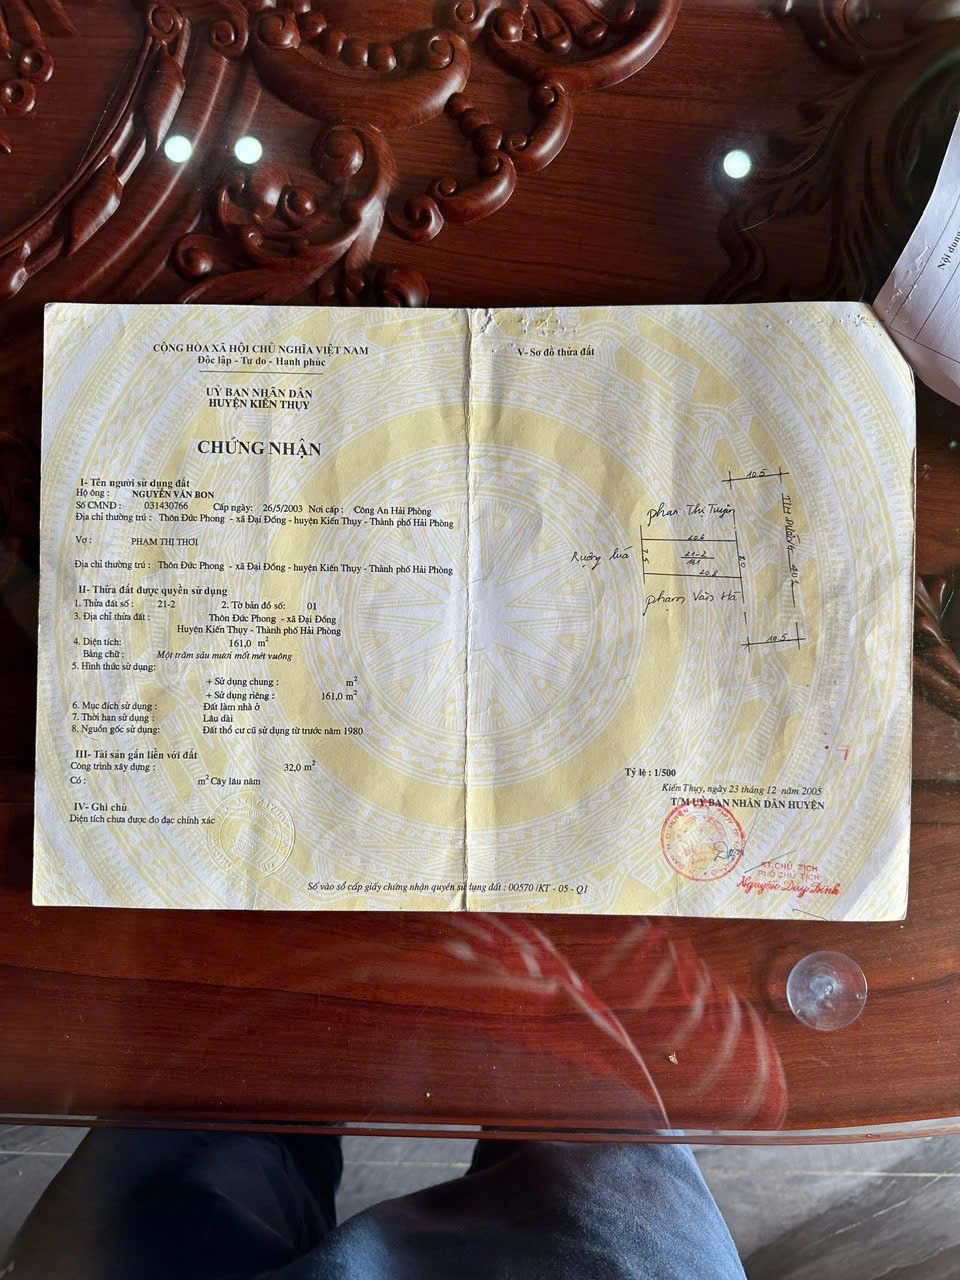 CỘNG HÒA XÃ HỘI CHỦ NGHĨA VIỆT NAM
Độc lập - Tự do - Hạnh phúc
UỶ BAN NHÂN DÂN
HUYỆN KIẾN THỤY
CHỨNG NHẬN
I- Tên người sử dụng đất
Hộ ông : NGUYỄN VĂN BON
Số CMND : 031430766 Cấp ngày: 26/5/2003 Nơi cấp : Công An Hải Phòng
Địa chỉ thường trú : Thôn Đức Phong - xã Đại Đồng - huyện Kiến Thụy - Thành phố Hải Phòng
Vợ : PHẠM THỊ THƠI
Địa chỉ thường trú : Thôn Đức Phong - xã Đại Đồng - huyện Kiến Thụy - Thành phố Hải Phòng
II- Thửa đất được quyền sử dụng
1. Thửa đất số : 21-2 2. Tờ bản đồ số: 01
3. Địa chỉ thửa đất : Thôn Đức Phong - xã Đại Đồng
Huyện Kiến Thụy - Thành phố Hải Phòng
4. Diện tích: 161,0 m2
Bằng chữ : Một trăm sáu mươi mốt mét vuông
5. Hình thức sử dụng:
+ Sử dụng chung : m2
+ Sử dụng riêng : 161,0 m2
6. Mục đích sử dụng : Đất làm nhà ở
7. Thời hạn sử dụng : Lâu dài
8. Nguồn gốc sử dụng: Đất thổ cư cũ sử dụng từ trước năm 1980
III- Tài sản gắn liền với đất
Công trình xây dựng : 32,0 m2
Có : m2 Cây lâu năm
IV- Ghi chú
Diện tích chưa được đo đạc chính xác
Số vào sổ cấp giấy chứng nhận quyền sử dụng đất : 00570 /KT - 05 - Q1
V- Sơ đồ thửa đất
10.5
Phan Thị Tuyện
20.6
Ruộng lúa
7.5
21-2
161
8.0
20.8
Phạm Văn Hà
10.5
Tỷ lệ : 1/500
Kiến Thụy, ngày 23 tháng 12 năm 2005
T/M UỶ BAN NHÂN DÂN HUYỆN
KT. CHỦ TỊCH
PHÓ CHỦ TỊCH
Nguyễn Duy Bình
Nội dung